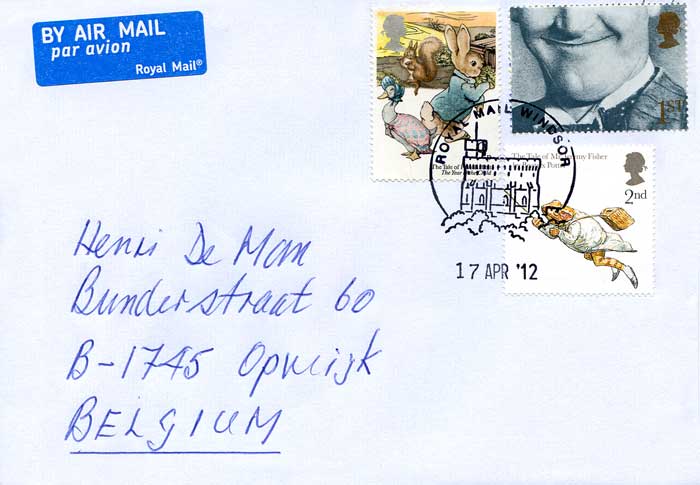 BY AIR MAIL
par avion
Royal Mail®
1ST
ROYAL MAIL WINDSOR
The Tale of
The Year
The Tale of Mr. Jeremy Fisher
2nd
17 APR '12
Henri De Man
Bunderstraat 60
B-1745 Opwijk
BELGIUM